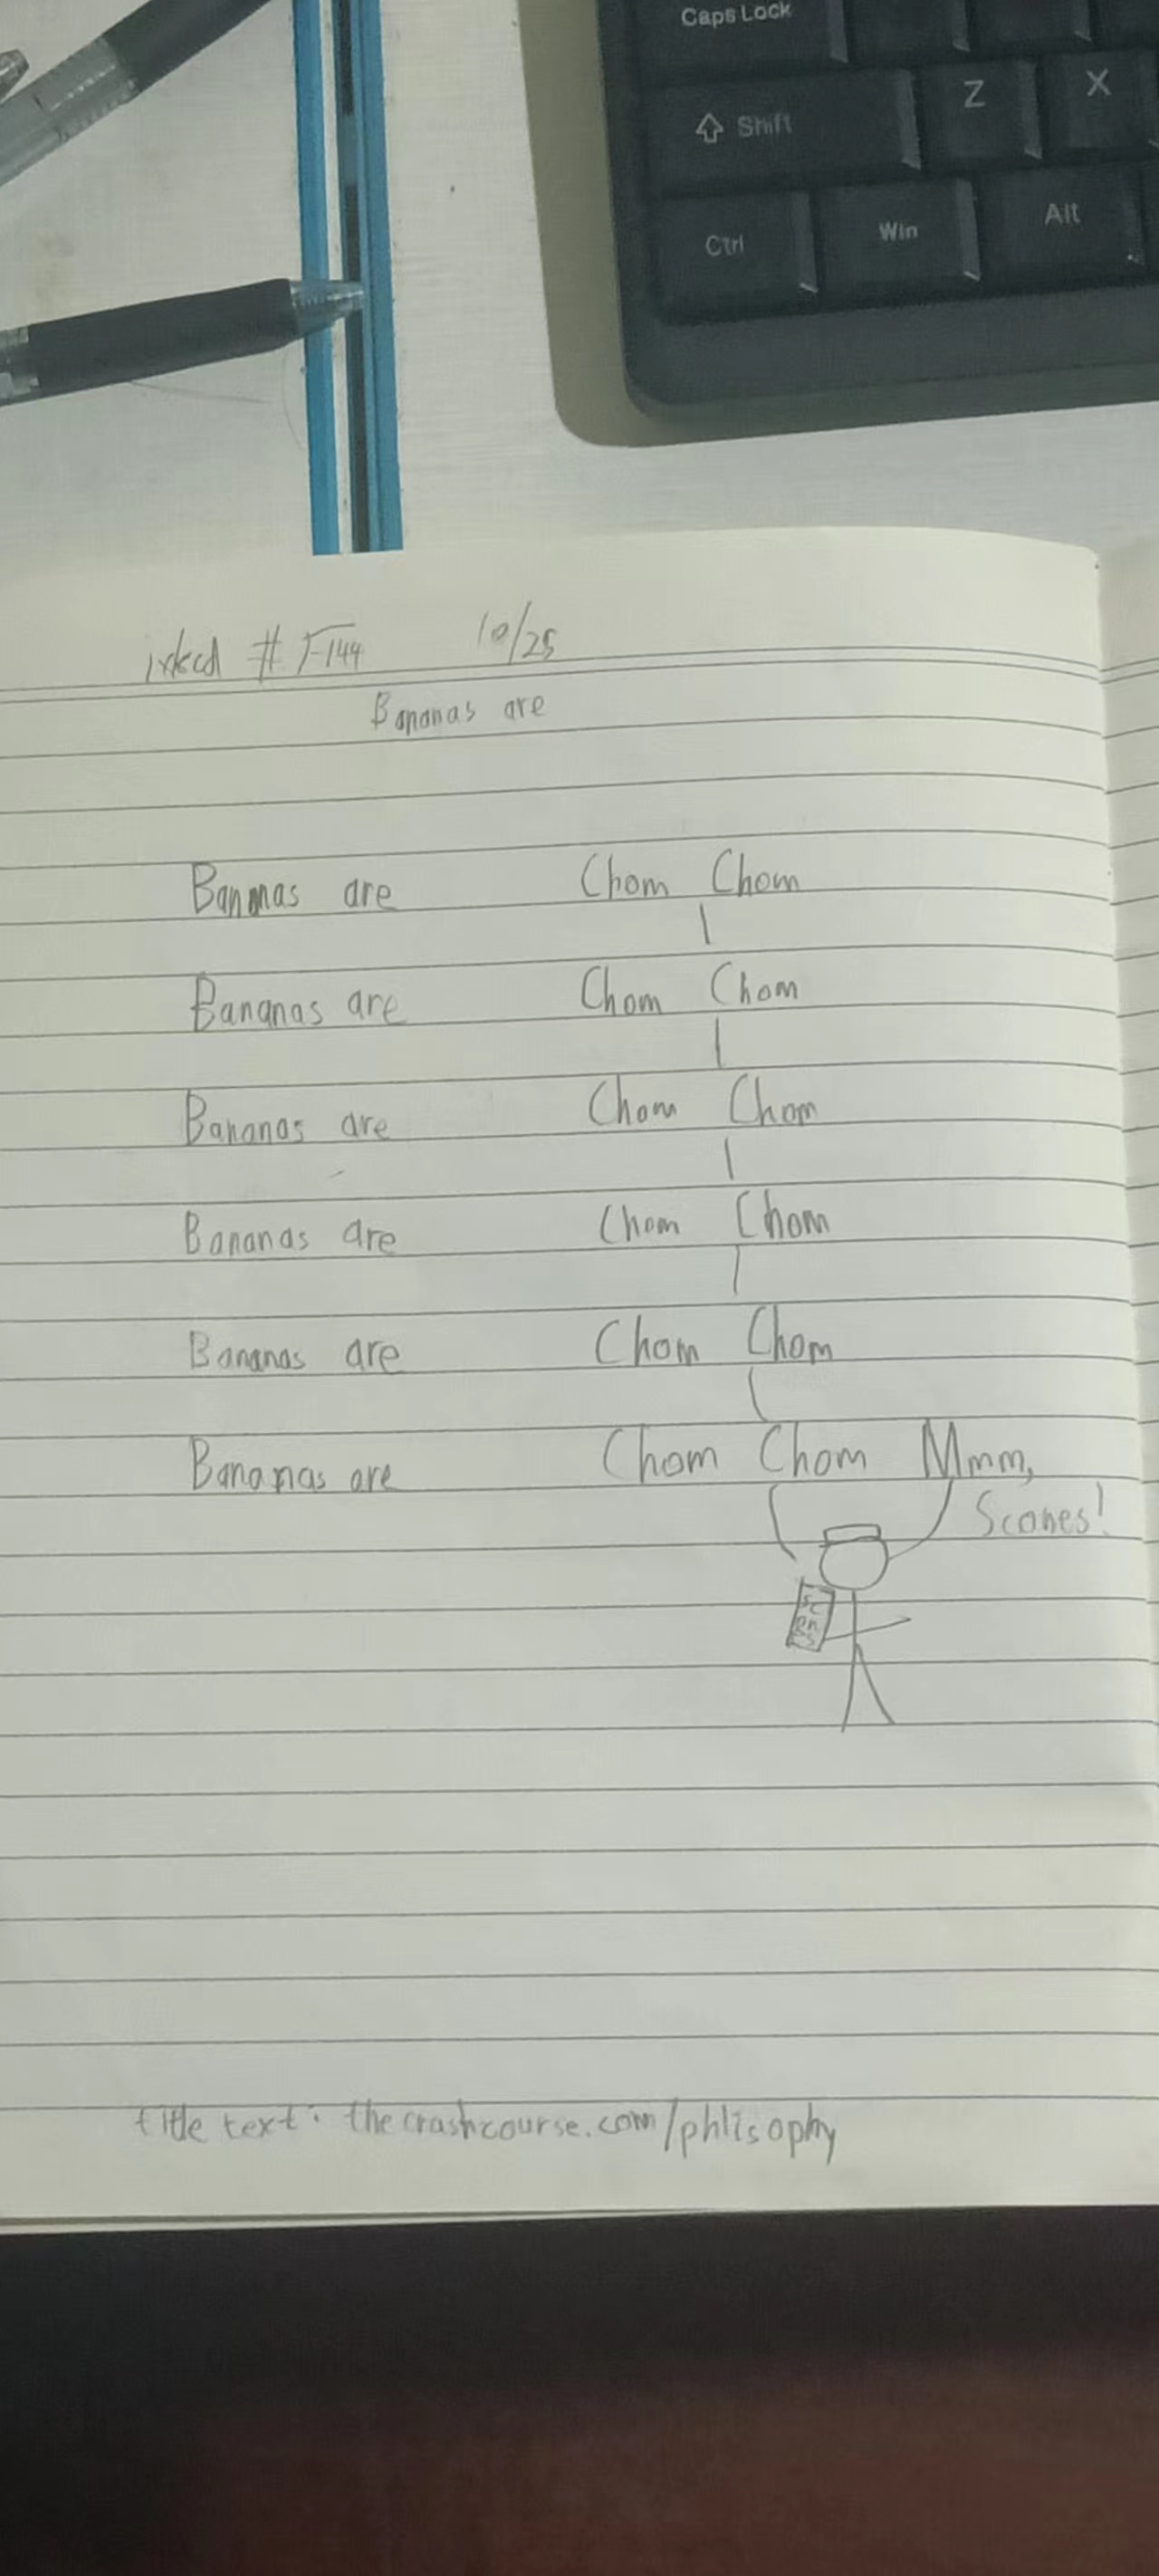 Caps Lock
Shift Z X
Ctrl Win Alt
ixkcd # √-144 10/25
Bananas are
Bananas are Chom Chom
Bananas are Chom Chom
Bananas are Chom Chom
Bananas are Chom Chom
Bananas are Chom Chom
Bananas are Chom Chom Mmm,
Scones!
SC
ON
ES
title text: thecrashcourse.com/phlisophy